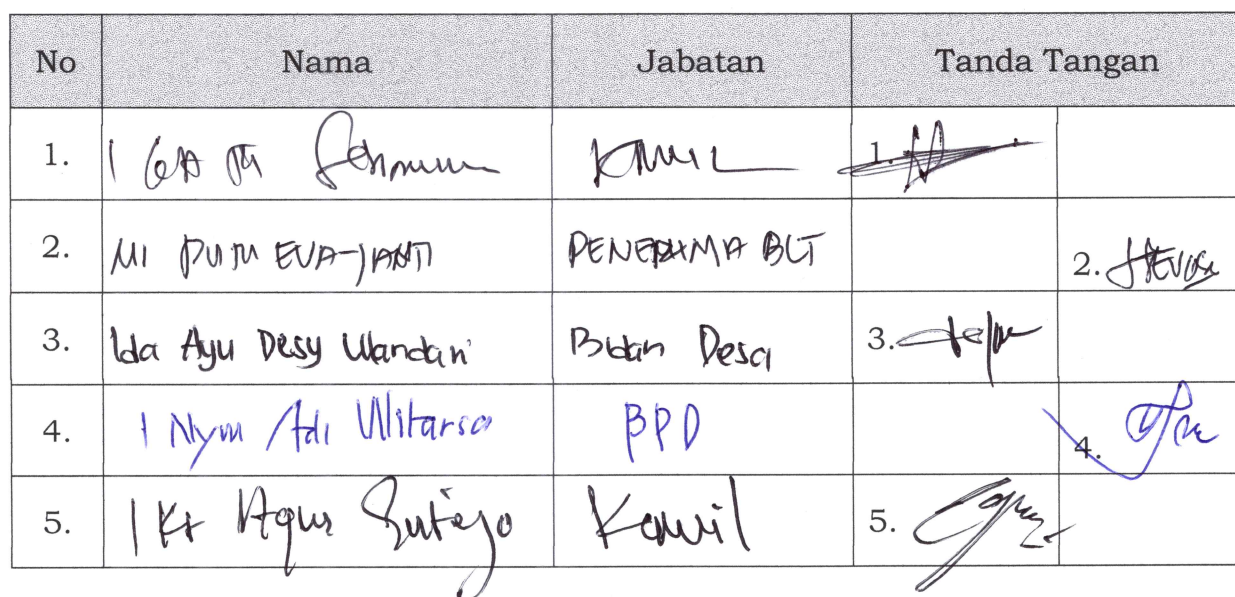 No Nama Jabatan Tanda Tangan
1. I GA Pt Kawil 1.
2. Ni Putu EVA-JANTI PENERIMA BLT 2.
3. Ida Ayu Desy Wandari Bidan Desa 3.
4. I Nym Adi Witarsa BPD 4.
5. I Kt Agus Sutejo Kawil 5.